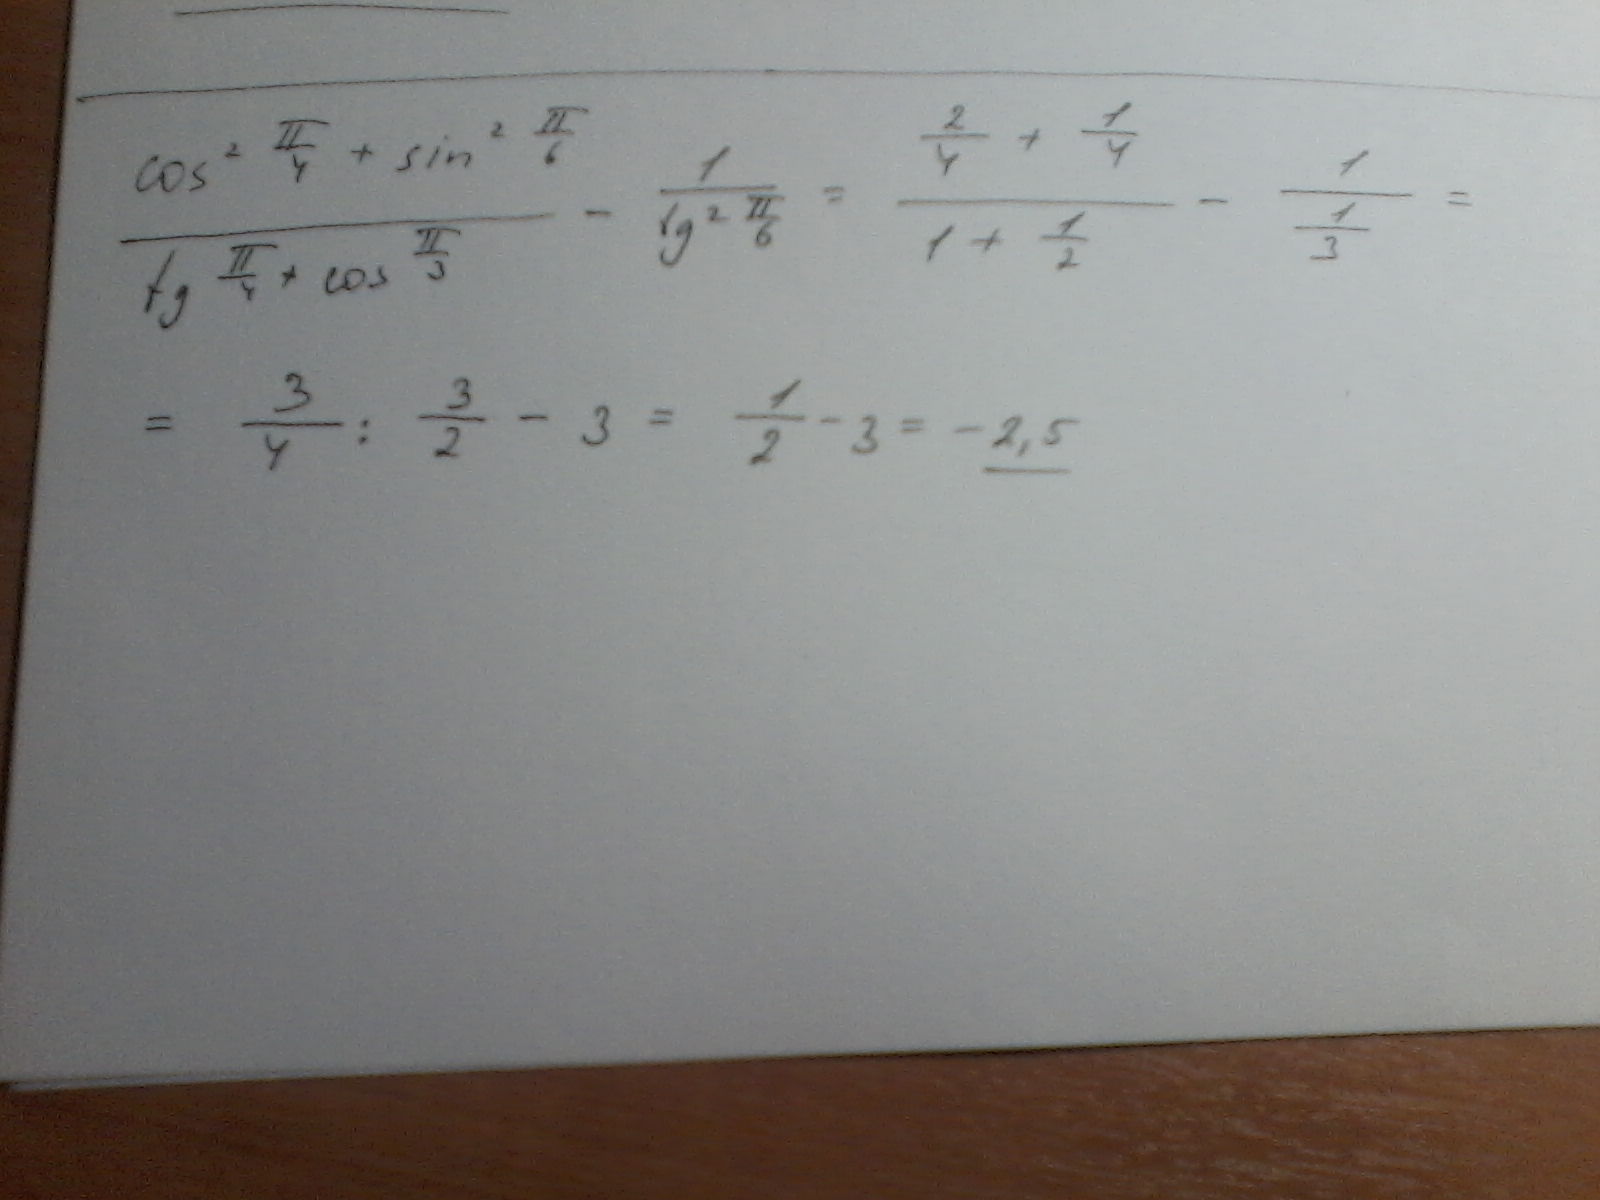 (cos² π/4 + sin² π/6)/(tg π/4 + cos π/3) − 1/(tg² π/6) = (2/4 + 1/4)/(1 + 1/2) − 1/(1/3) =
= 3/4 : 3/2 − 3 = 1/2 − 3 = −2,5